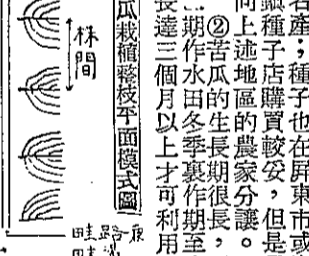 名產；種子也在屏東市或
鎮種子店購買較妥，但是
向上述地區的農家分讓。
②苦瓜的生長期很長，
期作水田冬季裏作期至
長達三個月以上才可利用
瓜栽植整枝平面模式圖
株間
畦路
畦溝